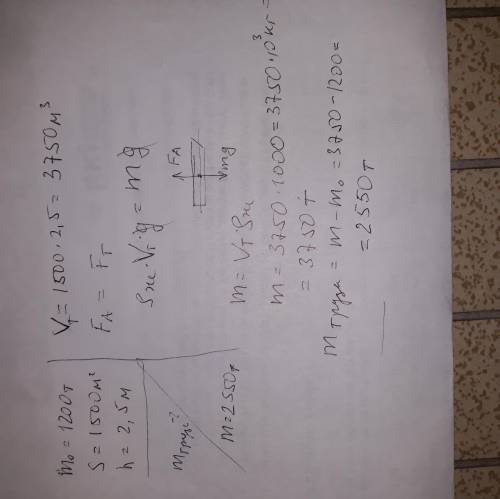 m₀ = 1200т
S = 1500м²
h = 2,5м
mгруз-?
m = 2550т
Vт = 1500 · 2,5 = 3750м³
FA = Fт
ρж · Vт · g = mg
FA
mg
m = Vт ρж
m = 3750 · 1000 = 3750 · 10³ кг =
= 3750 т
mгруза = m - m₀ = 3750 - 1200 =
= 2550т